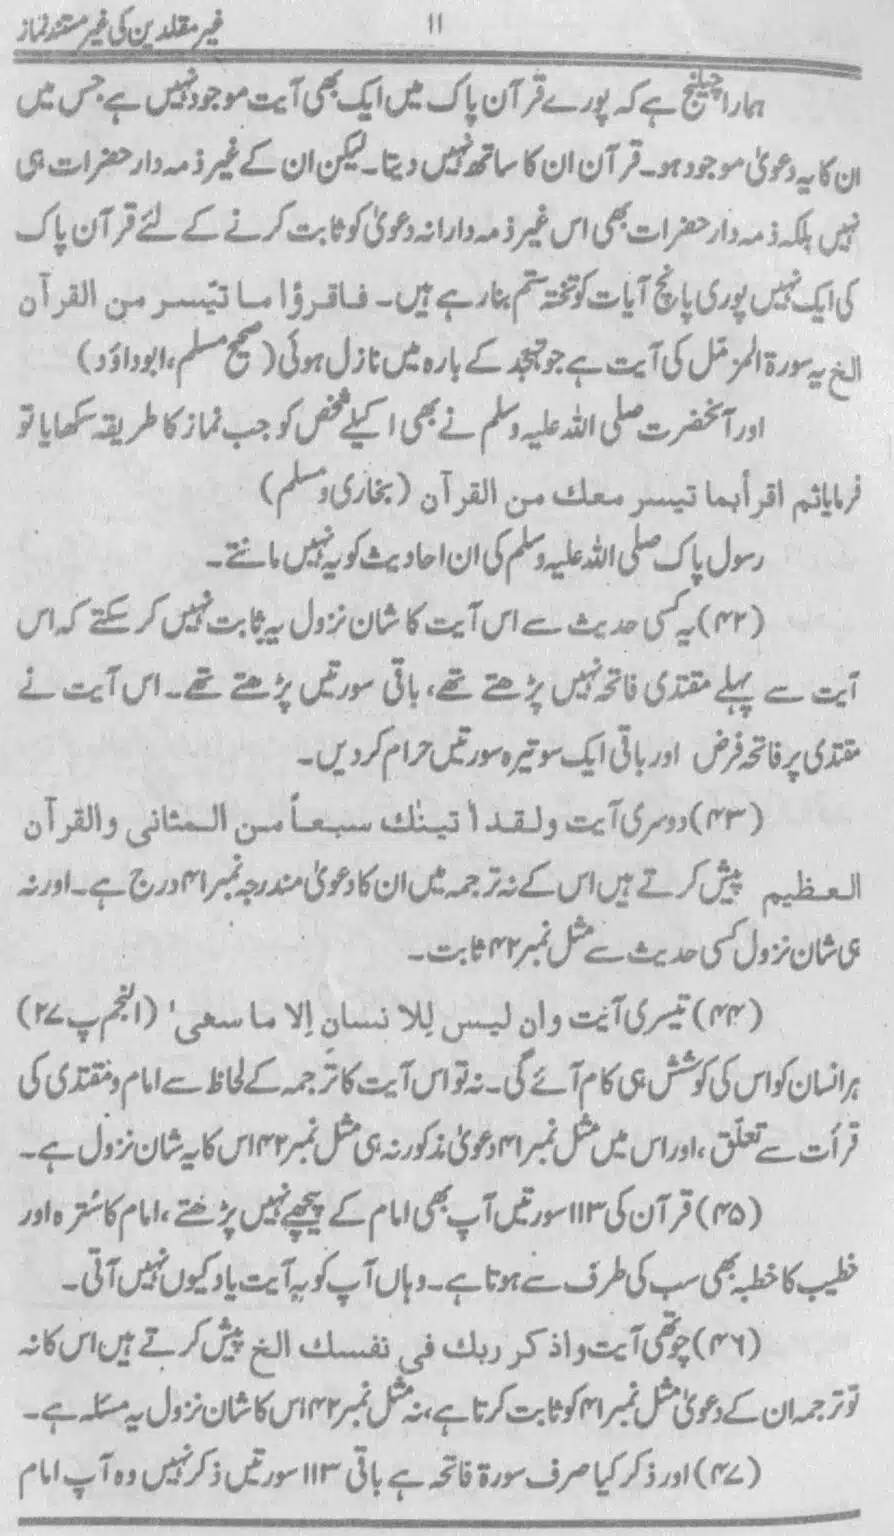 غیر مقلدین کی غیر مستند نماز
۱۱
ہمارا چیلنج ہے کہ پورے قرآن پاک میں ایک بھی آیت موجود نہیں ہے جس میں
ان کا یہ دعویٰ موجود ہو۔ قرآن ان کا ساتھ نہیں دیتا۔ لیکن ان کے غیر ذمہ دار حضرات ہی
نہیں بلکہ ذمہ دار حضرات بھی اس غیر ذمہ دارانہ دعویٰ کو ثابت کرنے کے لئے قرآن پاک
کی ایک نہیں پوری پانچ آیات کو تختہ ستم بنا رہے ہیں۔ فاقرؤا ما تیّسر من القرآن
الخ یہ سورۃ المزمّل کی آیت ہے جو تہجد کے بارہ میں نازل ہوئی (صحیح مسلم، ابوداؤد)
اور آنحضرت صلی اللہ علیہ وسلم نے بھی اکیلے شخص کو جب نماز کا طریقہ سکھایا تو
فرمایا ثم اقرأ بما تیسر معك من القرآن (بخاری و مسلم)
رسول پاک صلی اللہ علیہ وسلم کی ان احادیث کو یہ نہیں مانتے۔
(۴۲) یہ کسی حدیث سے اس آیت کا شان نزول یہ ثابت نہیں کر سکتے کہ اس
آیت سے پہلے مقتدی فاتحہ نہیں پڑھتے تھے، باقی سورتیں پڑھتے تھے۔ اس آیت نے
مقتدی پر فاتحہ فرض اور باقی ایک سو تیرہ سورتیں حرام کر دیں۔
(۴۳) دوسری آیت ولقد اٰ تینٰك سبعاً من المثانی والقرآن
العظیم پیش کرتے ہیں اس کے نہ ترجمہ میں ان کا دعویٰ مندرجہ نمبر ۴۱ درج ہے۔ اور نہ
ہی شان نزول کسی حدیث سے مثل نمبر ۴۲ ثابت۔
(۴۴) تیسری آیت وان لیس لِلا نسانِ اِلا ما سعی' (النجم پ ۲۷)
ہر انسان کو اس کی کوشش ہی کام آئے گی۔ نہ تو اس آیت کا ترجمہ کے لحاظ سے امام و مقتدی کی
قرأت سے تعلّق، اور اس میں مثل نمبر ۴۱ دعویٰ مذکور نہ ہی مثل نمبر ۴۲ اس کا یہ شان نزول ہے۔
(۴۵) قرآن کی ۱۱۳ سورتیں آپ بھی امام کے پیچھے نہیں پڑھتے، امام کا سُترہ اور
خطیب کا خطبہ بھی سب کی طرف سے ہوتا ہے۔ وہاں آپ کو یہ آیت یاد کیوں نہیں آتی۔
(۴۶) چوتھی آیت واذ کر ربك فی نفسك الخ پیش کرتے ہیں اس کا نہ
تو ترجمہ ان کے دعویٰ مثل نمبر ۴۱ کو ثابت کرتا ہے، نہ مثل نمبر ۴۲ اس کا شان نزول یہ مسئلہ ہے۔
(۴۷) اور ذکر کیا صرف سورۃ فاتحہ ہے باقی ۱۱۳ سورتیں ذکر نہیں وہ آپ امام